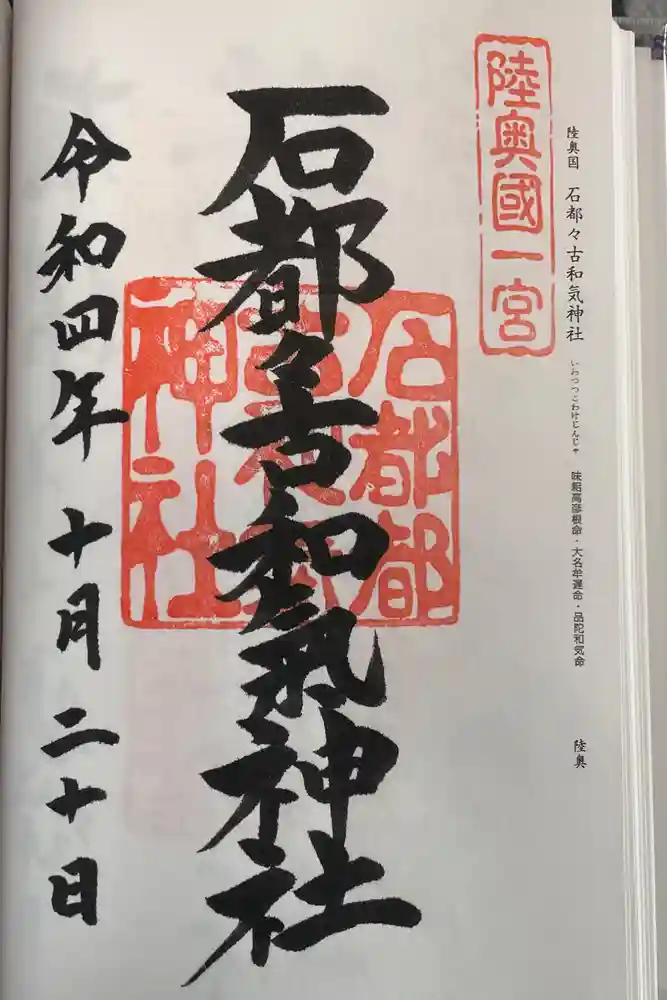 陸奥国 石都々古和気神社 いわつつこわけじんじゃ 味耜高彦根命・大名牟遅命・品陀和気命 陸奥
陸奥國一宮
石都々古和氣神社
石都都
古和氣
神社
令和四年 十月 二十日